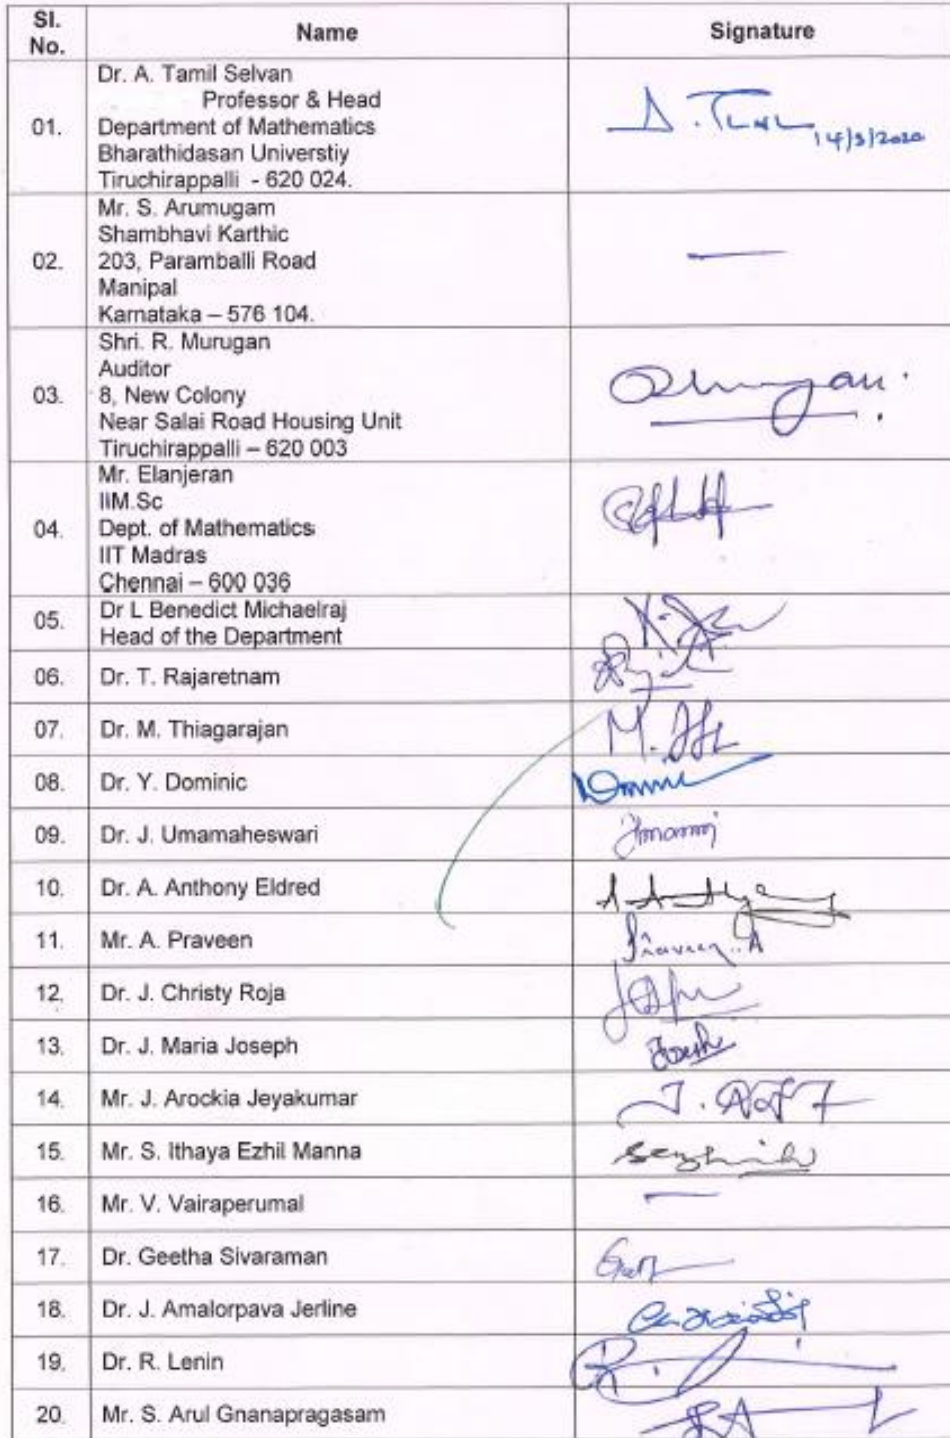 Sl. No. Name Signature
01. Dr. A. Tamil Selvan
Professor & Head
Department of Mathematics
Bharathidasan Universtiy
Tiruchirappalli - 620 024.
14/3/2020
02. Mr. S. Arumugam
Shambhavi Karthic
203, Paramballi Road
Manipal
Karnataka – 576 104.
03. Shri. R. Murugan
Auditor
8, New Colony
Near Salai Road Housing Unit
Tiruchirappalli – 620 003
04. Mr. Elanjeran
IIM.Sc
Dept. of Mathematics
IIT Madras
Chennai – 600 036
05. Dr L Benedict Michaelraj
Head of the Department
06. Dr. T. Rajaretnam
07. Dr. M. Thiagarajan
08. Dr. Y. Dominic
09. Dr. J. Umamaheswari
10. Dr. A. Anthony Eldred
11. Mr. A. Praveen Praveen. A
12. Dr. J. Christy Roja
13. Dr. J. Maria Joseph
14. Mr. J. Arockia Jeyakumar
15. Mr. S. Ithaya Ezhil Manna
16. Mr. V. Vairaperumal
17. Dr. Geetha Sivaraman
18. Dr. J. Amalorpava Jerline
19. Dr. R. Lenin
20. Mr. S. Arul Gnanapragasam